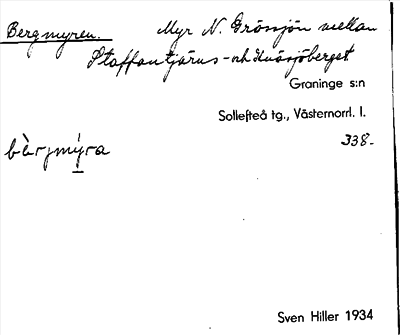 Bergmyren. Myr N. Grössjön mellan
Staffantjärns- och Knösjöberget
Graninge s:n
Sollefteå tg., Västernorrl. l.
338-
bèrjmýra
Sven Hiller 1934